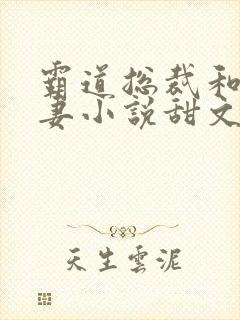 霸道总裁和
妻小说甜文
天生雲泥